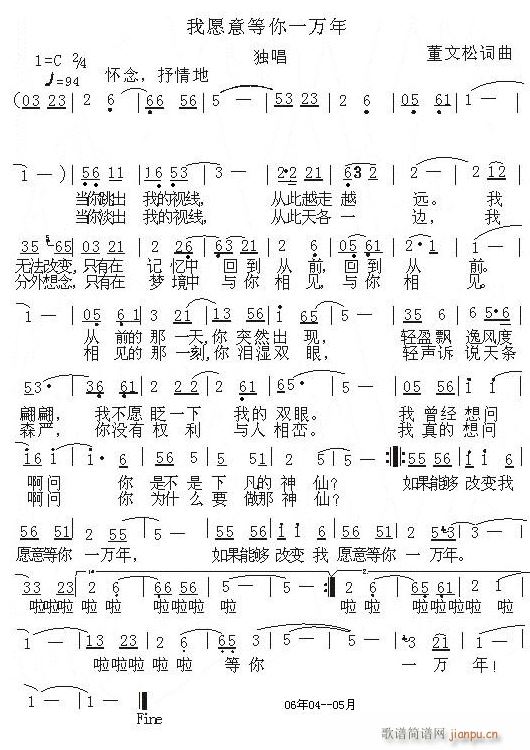 我愿意等你一万年
1=C 2/4 独唱 董文松词曲
♩=94 怀念，抒情地
(03 23 | 2 6 | 66 56 | 5 — | 5 — | 03 23 | 2 6 | 05 61 |
1 — ) | 56 11 | 16 53 | 3 — | 3 — | 2·2 21 | 632 | 1 — | 1 — | 2 12 |
当你跳出 我的视线， 从此越走 越 远。 我
当你淡出 我的视线， 从此天各 一 边， 我
35 65 | 03 21 | 2 26 | 06 53 | 2 6 | 05 61 | 2·1 | 1 — |
无法改变，只有在 记 忆中 回 到 从 前，回 到 从 前。
分外想念，只有在 梦 境中 与 你 相 见，与 你 相 见。
1 — | 05 61 | 1 3 | 21 | 7 5 | 6 1 | 5 — | 5 — | 05 56 | 6 2 | 5·6
从 前的 那 一 天，你 突 然 出 现， 轻盈飘 逸风度
相 见的 那 一 刻，你 泪湿 双 眼， 轻声诉 说天条
53· | 3 — | 36 61 | 2 22 | 2 6 | 5 2 | 3 — | 3 — | 05 56
翩翩， 我不愿 眨一下 我的 双眼。 我 曾经 想问
森严， 你没有 权 利 与人 相恋。 我 真的 想问
16 | 1· | 1· 6 | 56 53 | 2 35 | 6 7 | 5 — | 5 — | 05 55 | 56 16
啊问 你 是不 是下 凡的 神 仙？ 如果能够 改变我
啊问 你 为什 么要 做那 神 仙？
56 51 | 2 55 | 5 — | 05 55 | 56 | 1 1 | 56 51 | 2 53 | 5 —
愿意等你 一万年， 如果能够 改变 我 愿意等你 一万年。
33 23 | 2 6 | 66 56 | 5 — | 5 — | 2 6 | 65 61 | 1 —
啦啦啦啦 啦 啦 啦啦啦啦 啦 啦 啦 啦啦啦啦 啦
1 — | 13 23 | 2 6 | 65 | 5 — | 5 — | 5 | 3 21 | 1 —
啦啦啦啦 啦 啦 等 你 一 万 年！
1 — | 1 — ‖
Fine
06年04--05月
歌谱简谱网
jianpu.cn